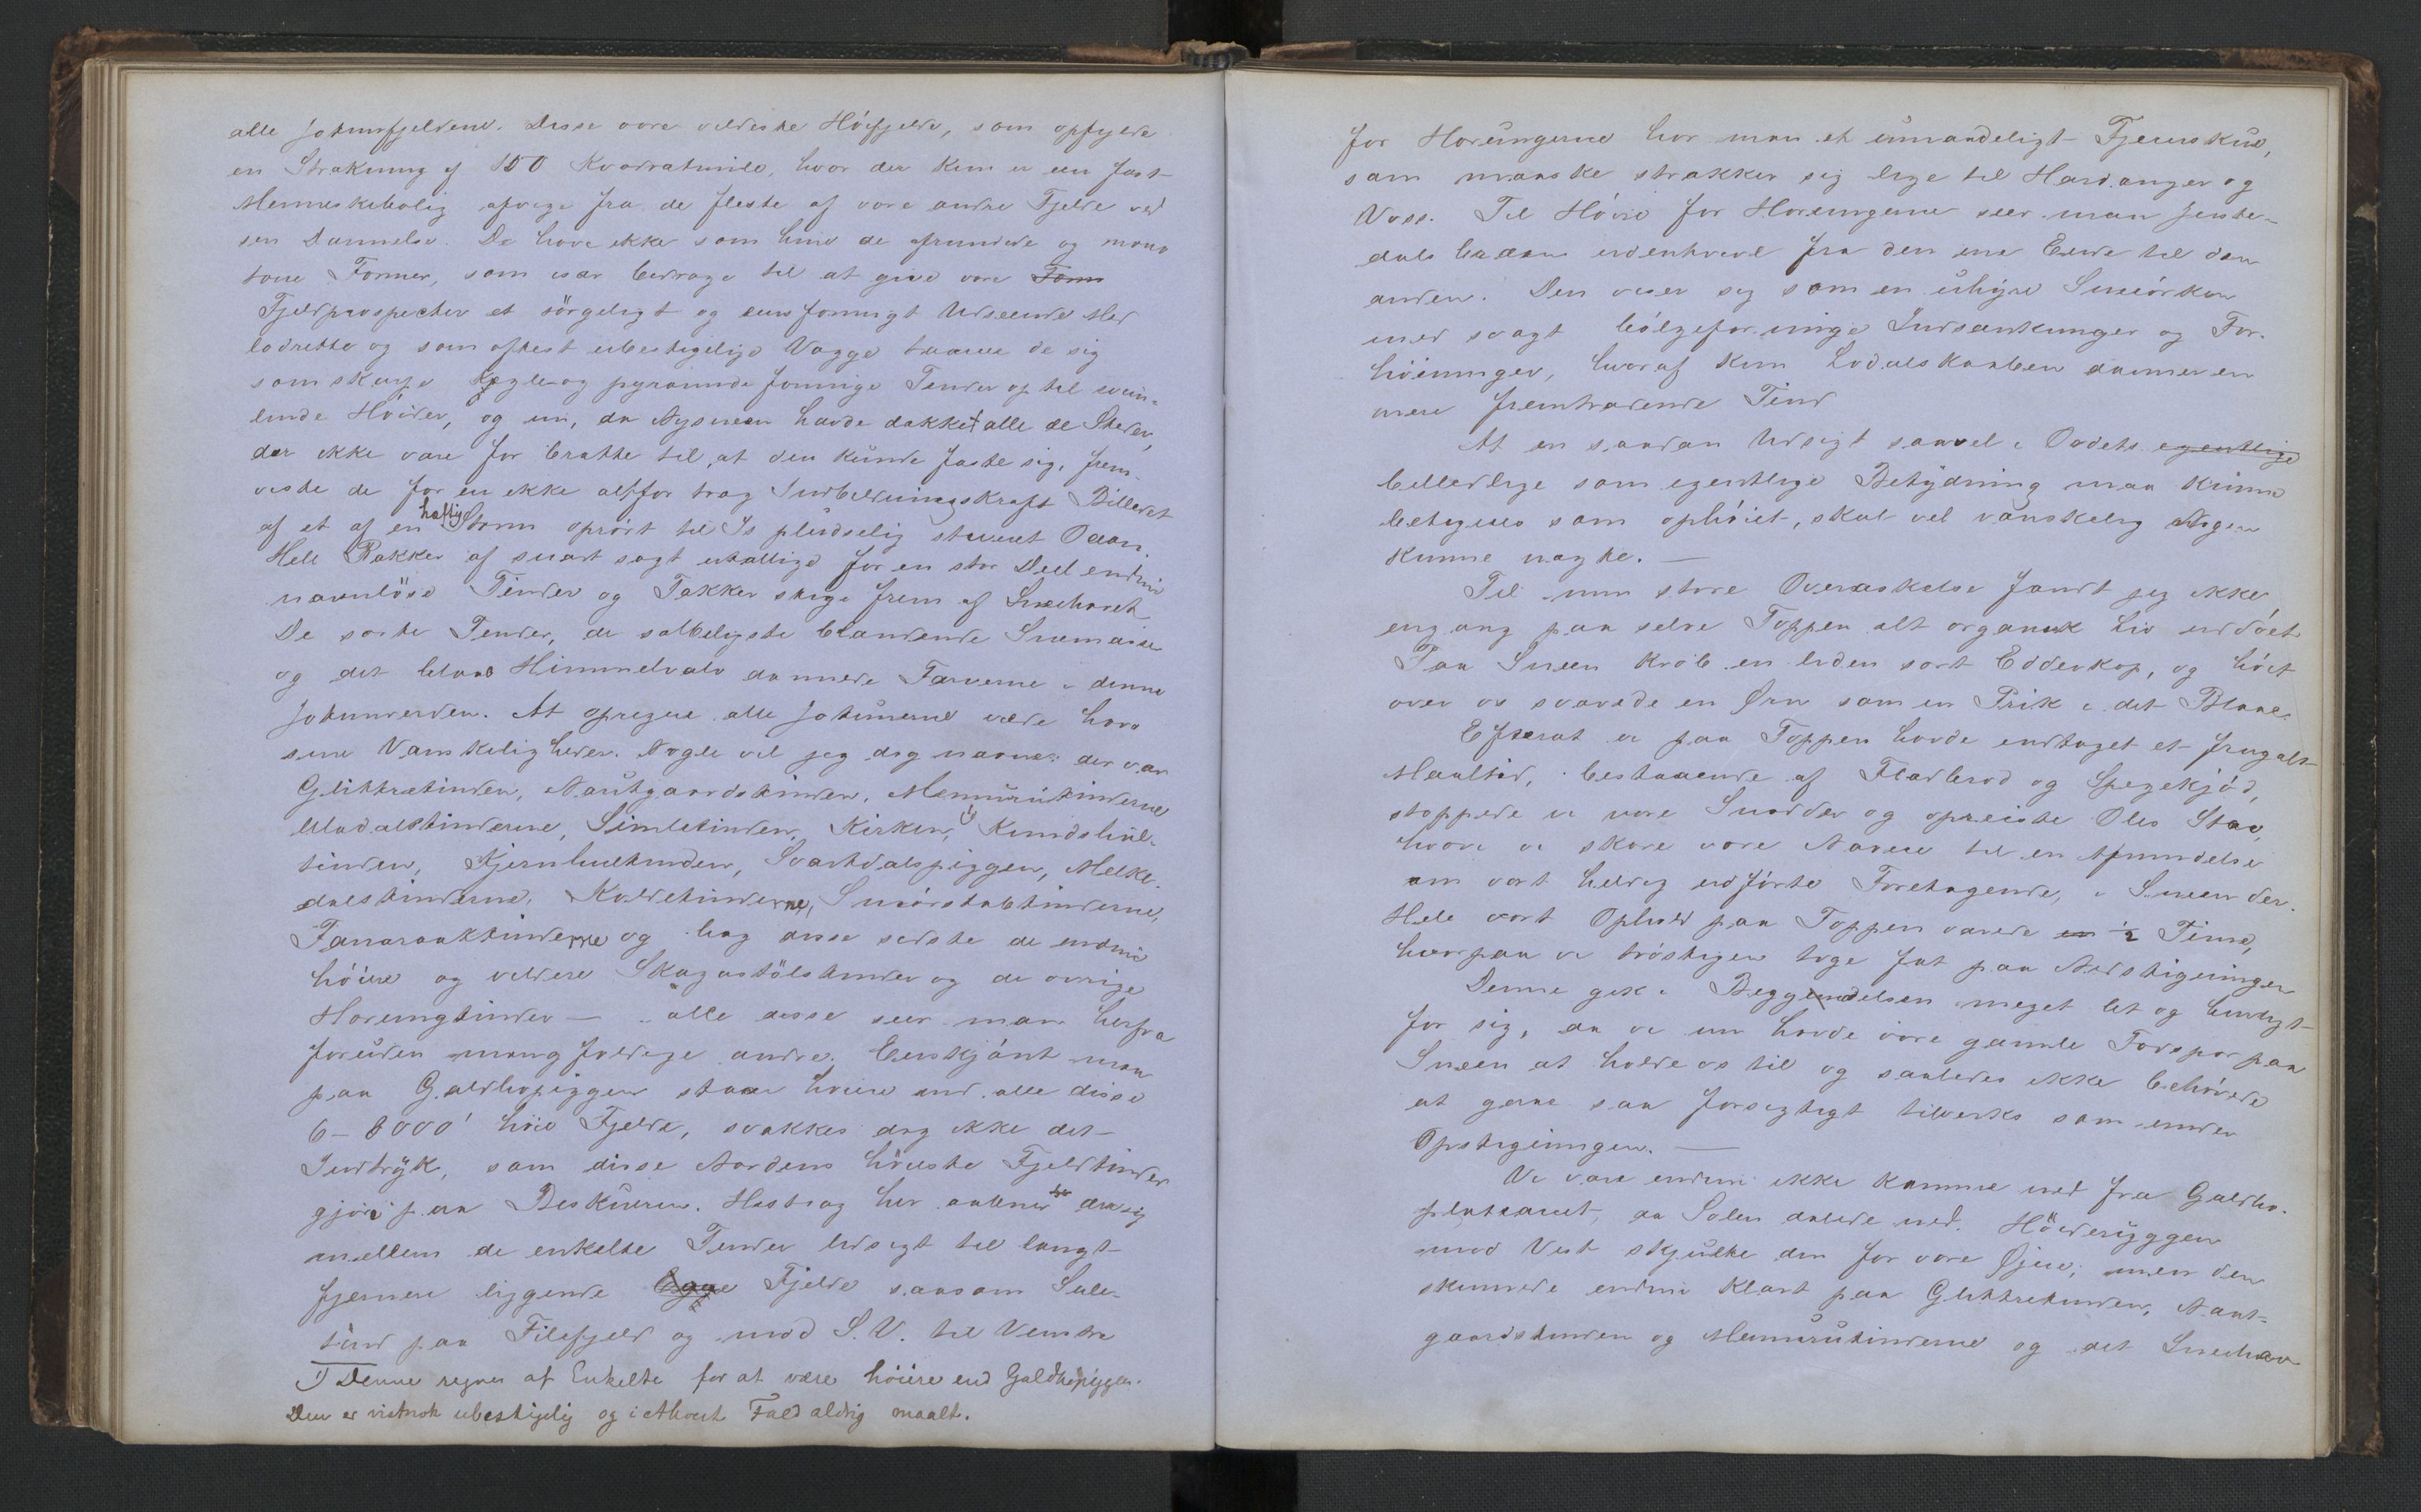 alle Jotunfjeldene. Disse vore vildeste Höifjelde, som opfylde
en Strækning af 150 Kvadratmile, hvor der kun er een fast
Menneskebolig afvige fra de fleste af vore andre Fjelde ved
sin Dannelse. De have ikke som hine de afrundede og mono
tone Former, som især bidrage til at give vore Form
Fjeldprospecter et sörgeligt og eensformigt Udseende Med
lodrette og som oftest ubestigelige Vægge taarne de sig
som skarpe kegle og pyramideformige Tinder op til svim-
lende Höider, og nu, da Nysneen havde dækket alle de Steder,
der ikke vare for bratte til, at den kunde fæste sig, frem-
viste de for en ikke altfor træg Indbildningskraft Billedet
af et af en heftig Storm oprört til Is pludselig stivnet Ocean.
Hele Rækker af snart sagt utallige for en stor Deel endnu
navnlöse Tinder og Takker stige frem af Sneehavet.
De sorte Tinder, de solbelyste blændende Sneemasser
og det blaae Himmelvalv dannede Farverne i denne
Jotunverden. At opregne alle Jotunerne vilde have
sine Vanskeligheder. Nogle vil jeg dog nævne: der var
Glittretinden, Nautgaardstinden, Memurutinderne
Uladalstinderne, Simletinden, Kirken, 1) Knudshul-
tinden, Kjernhultinden, Svartdalspiggen, Melke-
dalstinderne, Koldetinderne, Smörstabtinderne,
Fanaraaktinderne og bag disse sidste de endnu
höiere og vildere Skagastölstinder og de övrige
Horungtinder — alle disse seer man herfra
foruden mangfoldige andre. Enskjönt man
paa Galdhöpiggen staar höiere end alle disse
6-8000' höie Fjelde, svækkes dog ikke det
Indtryk, som disse Nordens höieste Fjeldtinder
gjöre paa Beskueren. Hist og her aabner der sig
mellem de enkelte Tinder Udsigt til langt
fjernere liggende Fjelde saasom Sule-
tind paa Filefjeld og mod S.V. til Venstre
1) Denne regnes af Enkelte for at være höiere end Galdhöpiggen.
Den er vistnok ubestigelig og i ethvert Fald aldrig maalt.
for Horungerne har man et umaadeligt Fjernskue,
som maaske strækker sig lige til Hardanger og
Voss. Til Höire for Horungerne seer man Joste-
dalsbræen udenhvert fra den ene Ende til den
anden. Den viser sig som en uhyre Sneeörken
med svagt bölgeformige Indsænkninger og For-
höininger, hvoraf kun Lodalskaaben danner en
mere fremtrædende Tind
At en saadan Udsigt saavel i Ordets egentlige
billedlige som egentlige Betydning maa kunne
betegnes som ophöiet, skal vel vanskelig Nogen
kunne nægte. —
Til min store Overraskelse fandt jeg ikke
engang paa selve Toppen alt organisk Liv uddöet
Paa Sneen kröb en liden sort Edderkop, og höit
over os svævede en Ørn som en Prik i det Blaae.
Efterat vi paa Toppen havde indtaget et frugalt
Maaltid, bestaaende af Fladbröd og Spegekjöd,
stoppede vi vore Snadder og opreiste Oles Stav,
hvori vi skare vore Navne til en Mindelse
om vort heldig udförte Foretagende, i Sneen der.
Hele vort Ophold paa Toppen varede en ½ Time,
hvorpaa vi tröstigen toge fat paa Nedstigningen
Denne gik i Begyndelsen meget let og hurtigt
for sig, da vi nu havde vore gamle Fodspor paa
Sneen at holde os til og saaledes ikke behövede
at gaae saa forsigtigt tilverks som under
Opstigningen. —
Vi vare endnu ikke komme ned fra Galdhö-
plateauet, da Solen dalede ned. Höideryggen
mod Vest skjulte den for vore Øjne; men den
skinnede endnu klart paa Glittretinden, Naut-
gaardstinden og Memurutinderne og det Sneehav